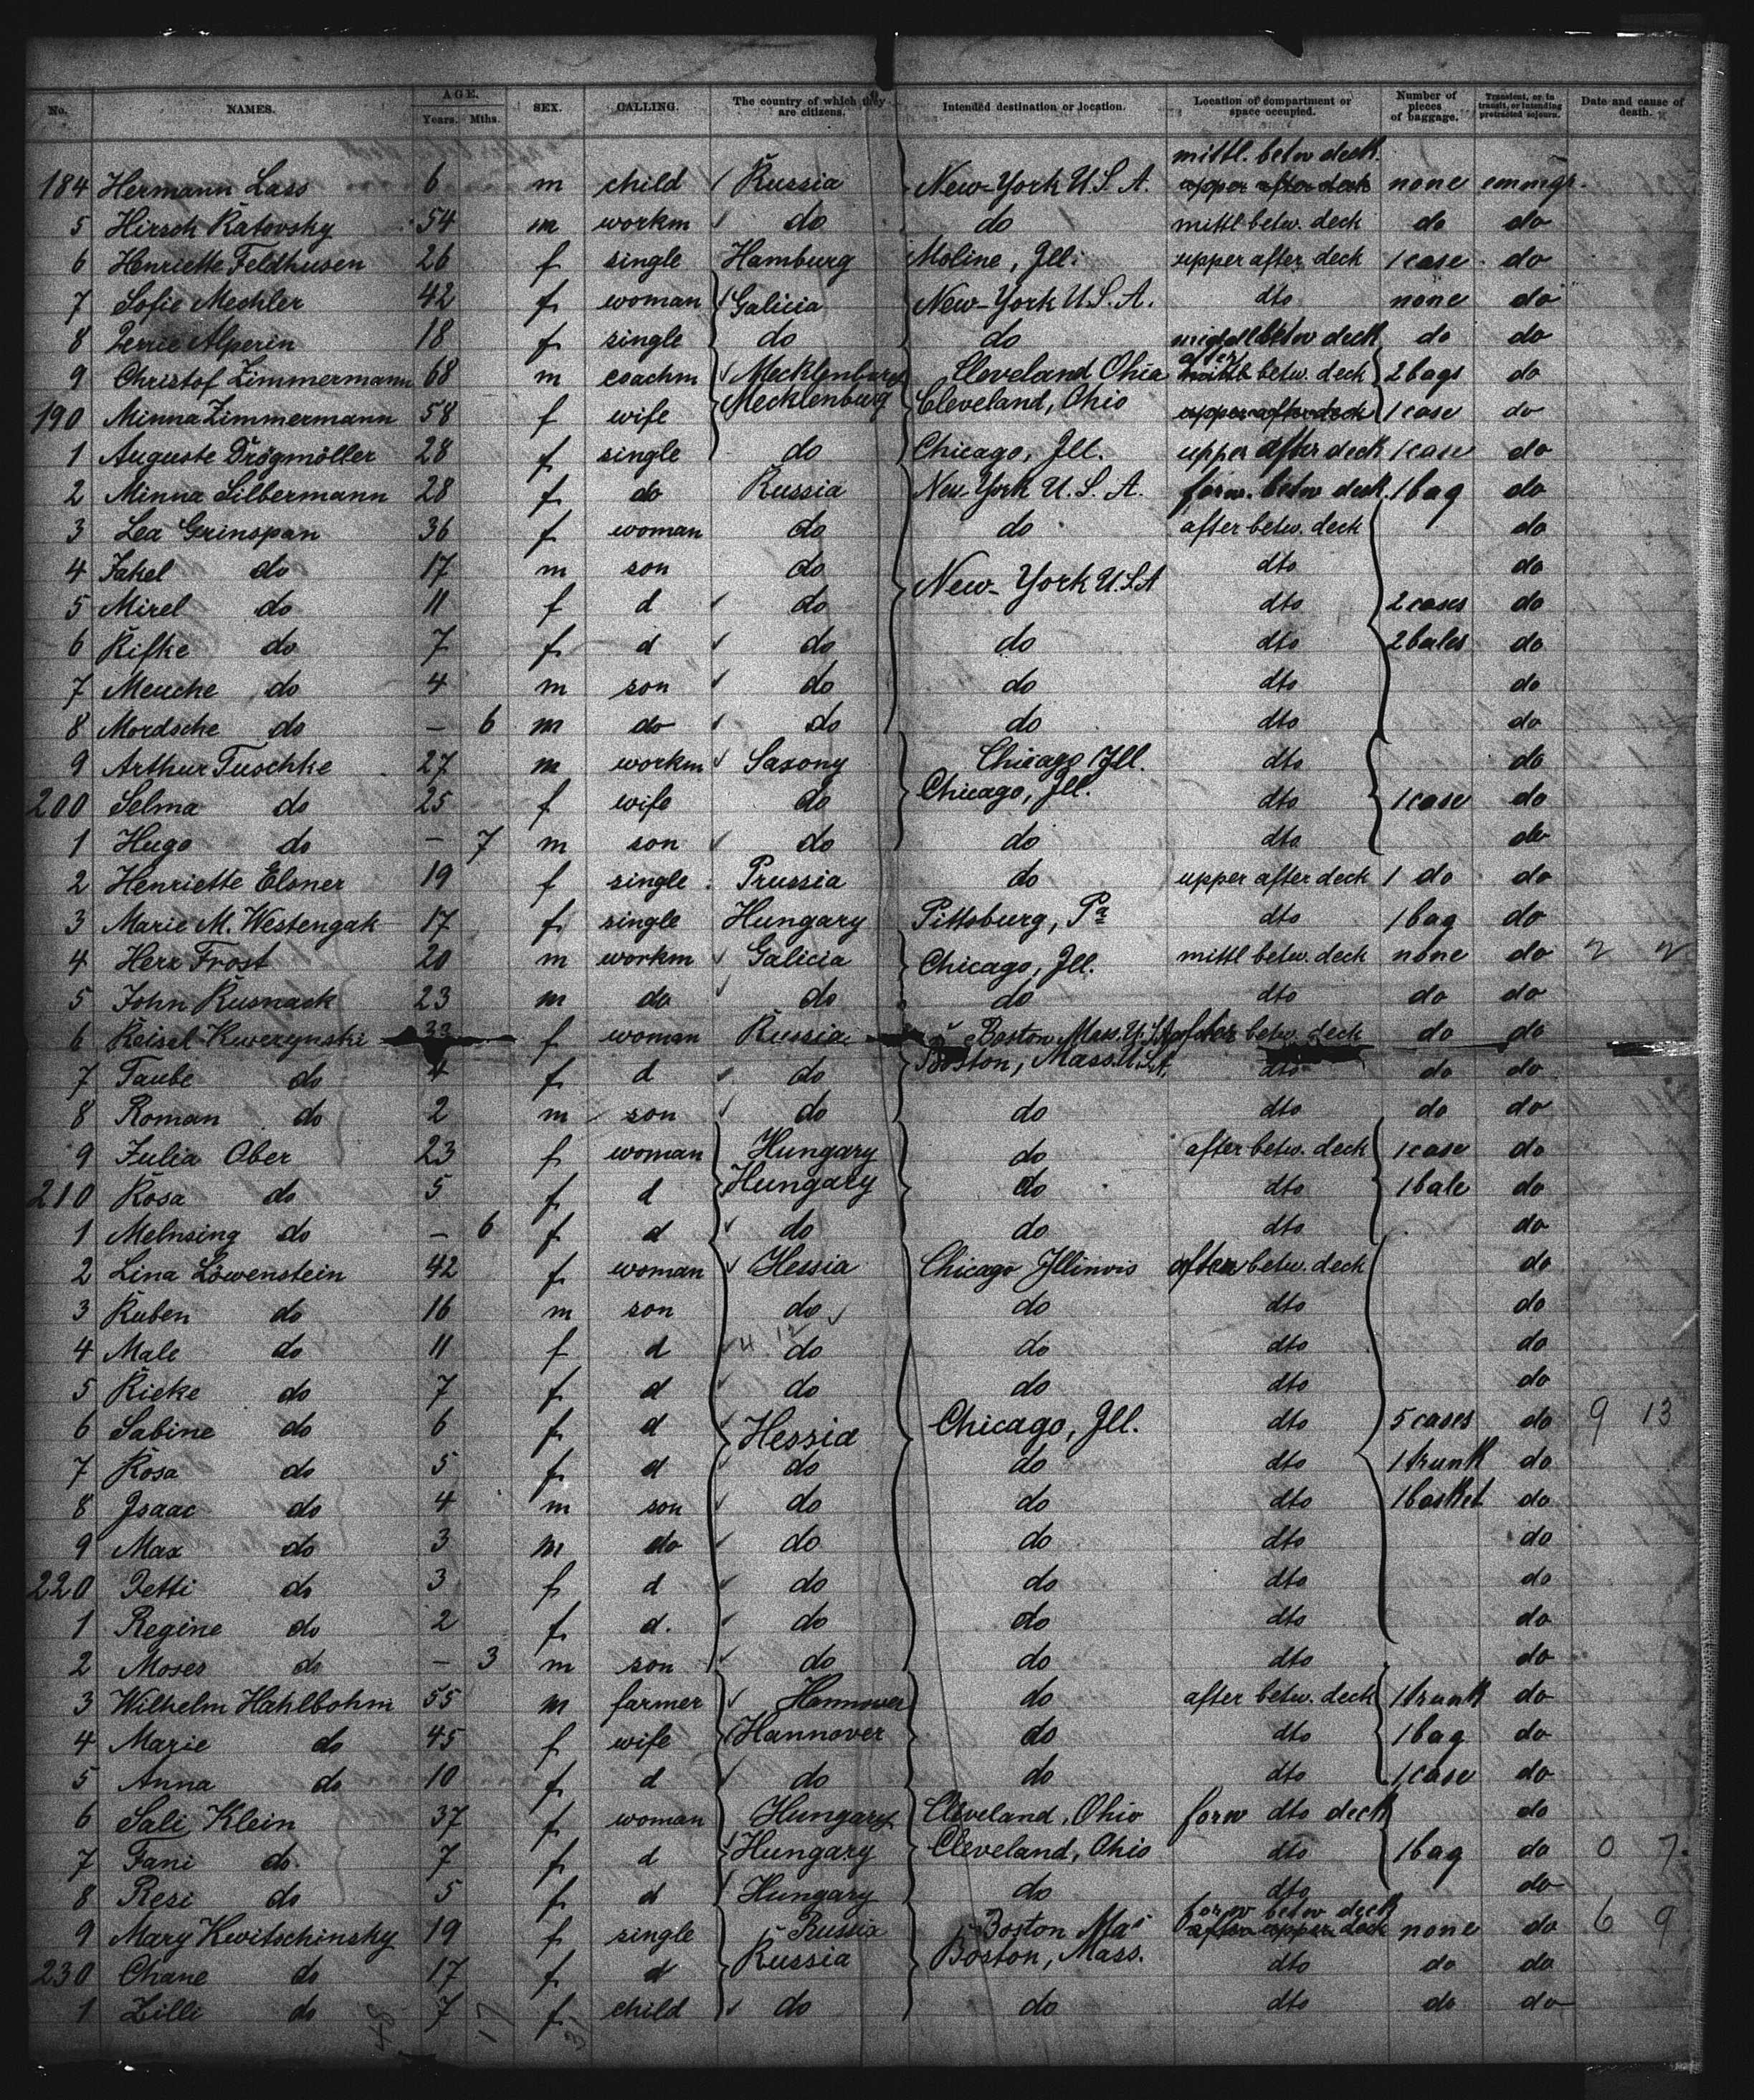 No. NAMES. AGE. Years. Mths. SEX. CALLING. The country of which they are citizens. Intended destination or location. Location of compartment or space occupied. Number of pieces of baggage. Transient, or in transit, or intending protracted sojourn. Date and cause of death.
mittl. betw deck.
184 Hermann Lass 6 m child Russia New-York U.S.A. upper after deck none emmigr.
5 Hirsch Katovsky 54 m workm do do mittl betw. deck do do
6 Henriette Feldhusen 26 f single Hamburg Moline, Ill. upper after deck 1 case do
7 Sofie Mechler 42 f woman Galicia New-York U.S.A. dto none do
8 Alperin 18 f single do do middl betw deck do do
9 Christof Zimmermann 68 m coachm Mecklenburg Cleveland Ohio after mittl betw. deck 2 bags do
190 Minna Zimmermann 58 f wife Mecklenburg Cleveland, Ohio upper after deck 1 case do
1 Auguste Drögmöller 28 f single do Chicago, Ill. upper after deck 1 case do
2 Minna Silbermann 28 f do Russia New-York U.S.A. forw. betw deck. 1 bag do
3 Lea Grinspan 36 f woman do do after betw. deck do
4 Jakel do 17 m son do New-York U.S.A dto do
5 Mirel do 11 f d do dto 2 cases do
6 Rifke do 7 f d do do dto 2 bales do
7 Meuche do 4 m son do do dto do
8 Mordsche do – 6 m do do do dto do
9 Arthur Tuschke 27 m workm Saxony Chicago Ill. dto do
200 Selma do 25 f wife do Chicago, Ill. dto 1 case do
1 Hugo do – 7 m son do do dto do
2 Henriette Elsner 19 f single Prussia do upper after deck 1 do do
3 Marie M. Westengak 17 f single Hungary Pittsburg, Pa dto 1 bag do
4 Herr Frost 20 m workm Galicia Chicago, Ill. mittl betw. deck none do
5 John Rusnack 23 m do do do dto do do
6 Reisel Kwezynski 33 f woman Russia Boston Mass. U.S.A after betw. deck do do
7 Taube do 4 f d do Boston, Mass. U.S.A. dto do do
8 Roman do 2 m son do do dto do do
9 Julia Ober 23 f woman Hungary do after betw. deck 1 case do
210 Rosa do 5 f d Hungary do dto 1 bale do
1 Melnsing do – 6 f d do do dto do
2 Lina Löwenstein 42 f woman Hessia Chicago Illinois after betw. deck do
3 Ruben do 16 m son do do dto do
4 Male do 11 f d 4 12 do do dto do
5 Rieke do 7 f d do do dto do
6 Sabine do 6 f d Hessia Chicago, Ill. dto 5 cases do 9 13
7 Rosa do 5 f d do do dto 1 trunk do
8 Isaac do 4 m son do do dto 1 basket do
9 Max do 3 m do do do dto do
220 Jetti do 3 f d do do dto do
1 Regine do 2 f d. do do dto do
2 Moses do – 3 m son do do dto do
3 Wilhelm Hahlbohm 55 m farmer Hannover do after betw. deck 1 trunk do
4 Marie do 45 f wife Hannover do dto 1 bag do
5 Anna do 10 f d do do dto 1 case do
6 Sali Klein 37 f woman Hungary Cleveland, Ohio forw dto deck do
7 Fani do 7 f d Hungary Cleveland, Ohio dto 1 bag do 0 7
8 Resi do 5 f d Hungary do dto do
forw betw deck
9 Mary Kwitschinsky 19 f single Russia Boston Mas after upper deck none do 6 9
230 Chane do 17 f d Russia Boston, Mass. dto do do
1 Zilli do 7 f child do do dto do do
48 17 31